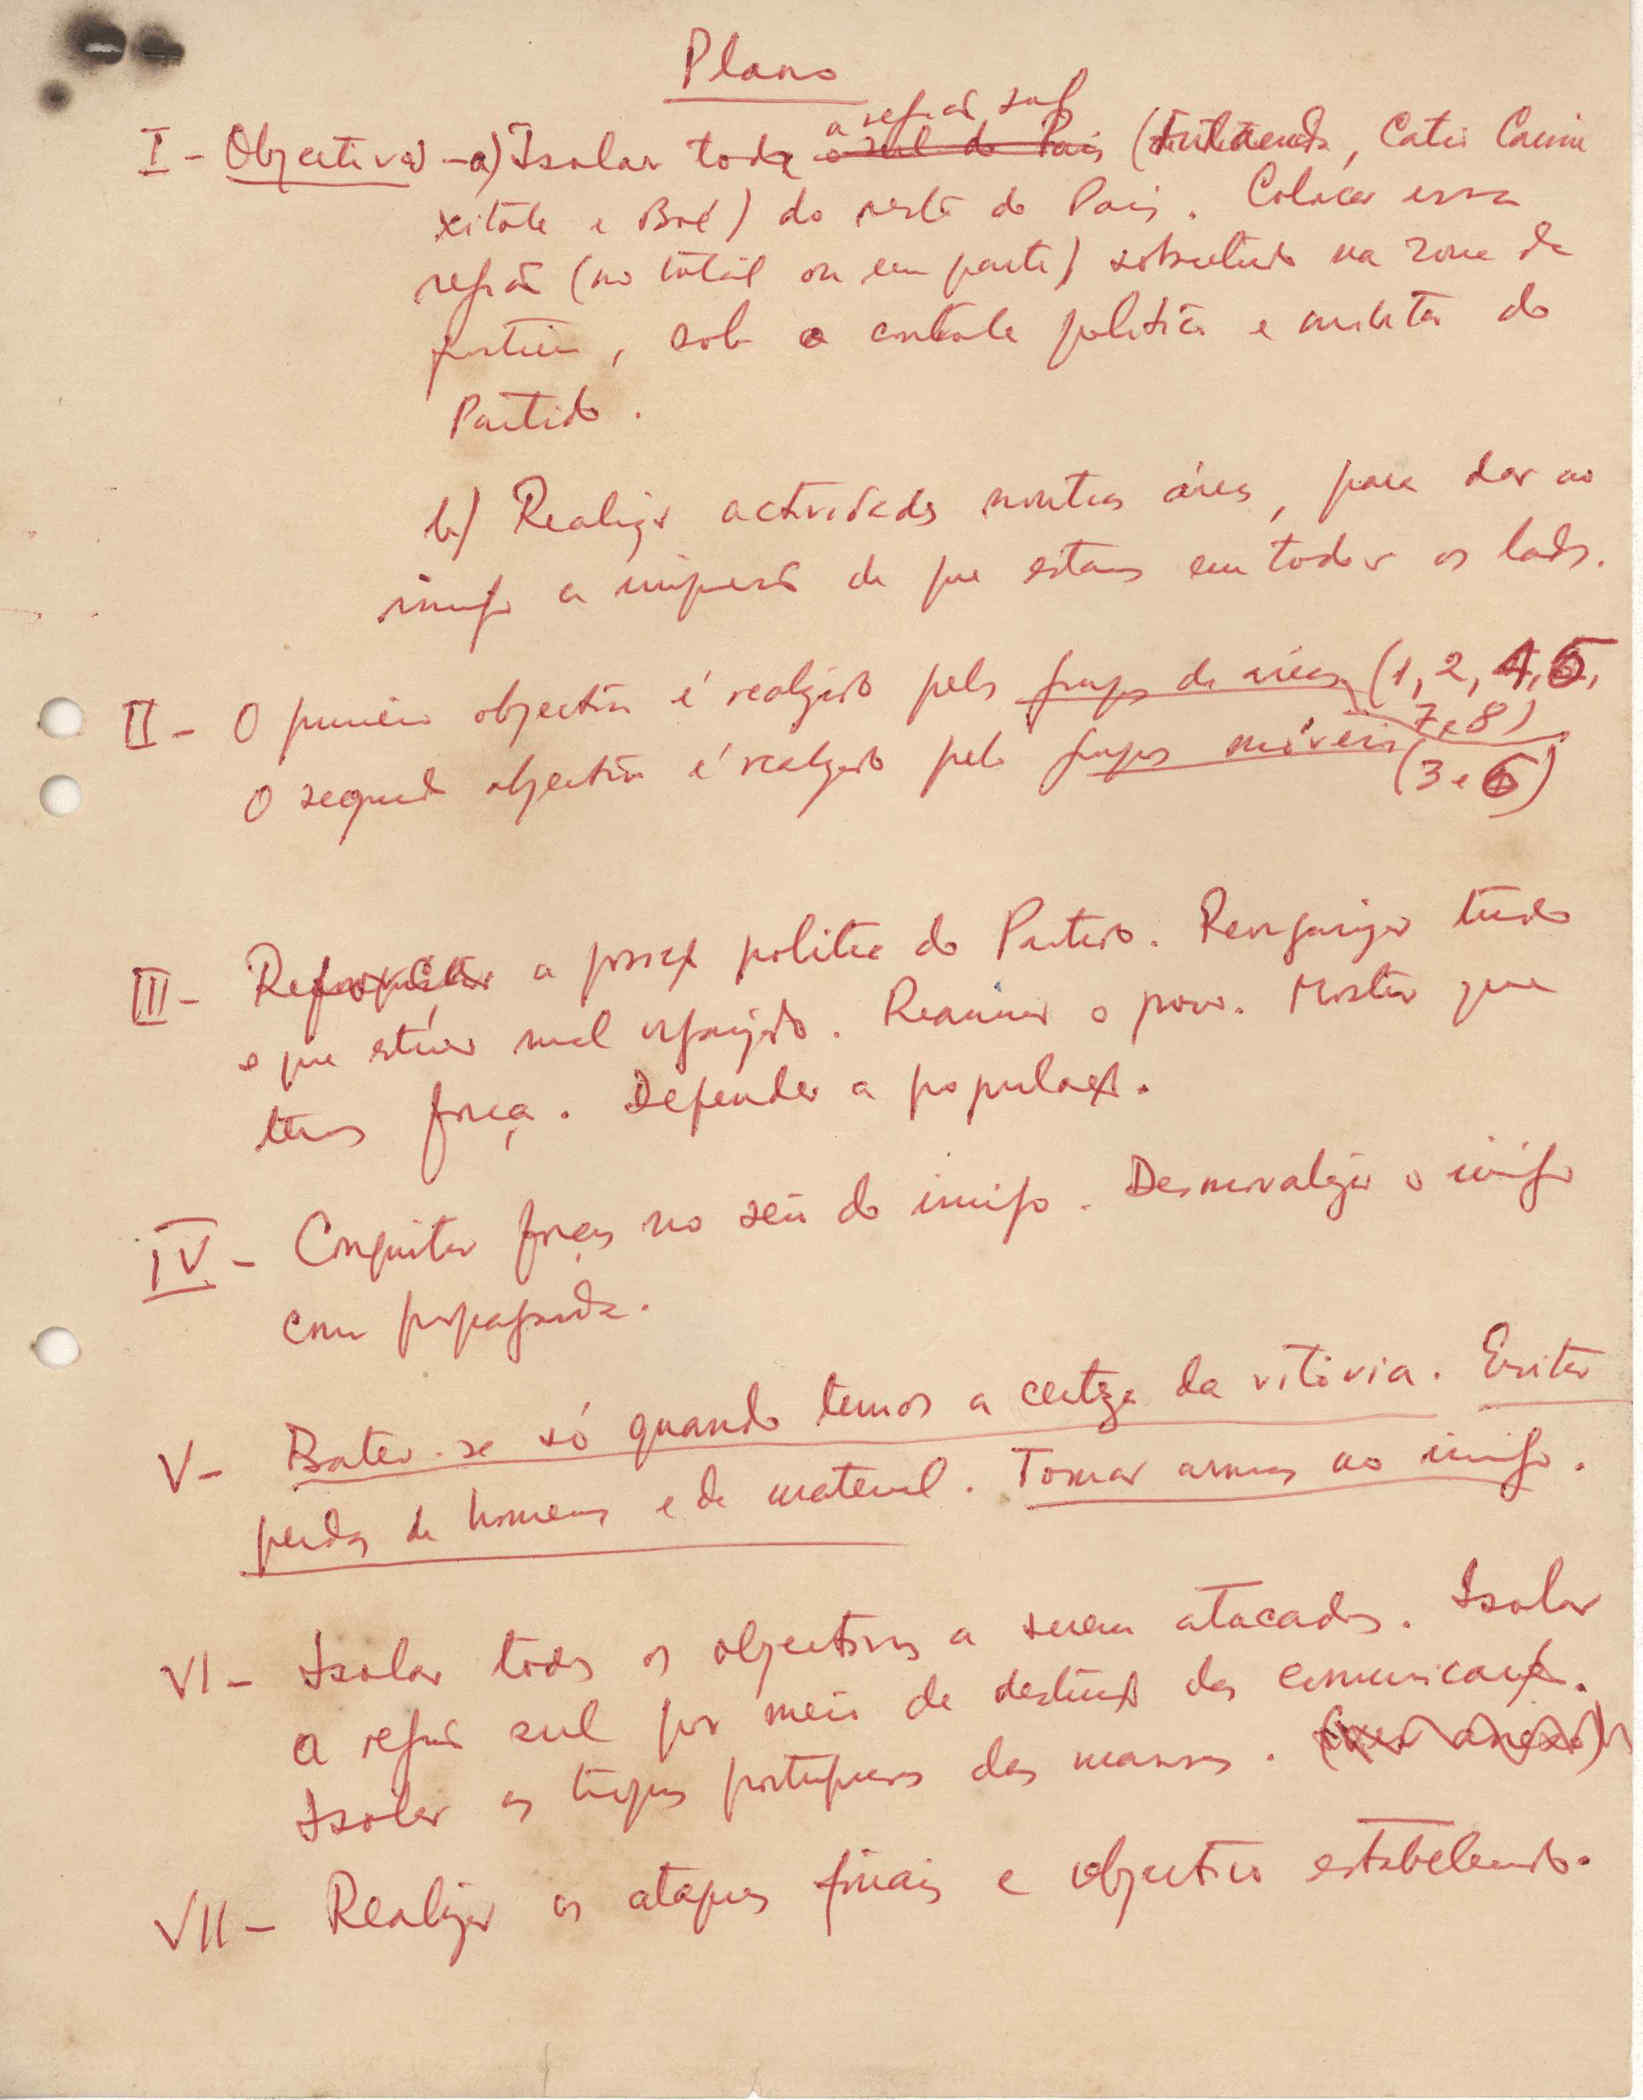 Plano
I - Objectivos - a) Isolar toda a região sul (Fulacunda, Catió, Cacine
Xitole e Boé) do resto do País. Colocar essa
região (no total ou em parte) sobretudo na zona da
fronteira, sob o controle político e militar do
Partido.
b) Realizar actividades noutras áreas, para dar ao
inimigo a impressão de que estamos em todos os lados.
II - O primeiro objectivo é realizado pelos grupos de áreas (1, 2, 4, 5,
7 e 8)
O segundo objectivo é realizado pelos grupos móveis
(3 e 6)
III - Reforçar a posição política do Partido. Reorganizar tudo
o que estiver mal organizado. Reanimar o povo. Mostrar que
temos força. Defender a população.
IV - Conquistar forças no seio do inimigo. Desmoralizar o inimigo
com propaganda.
V - Bater-se só quando temos a certeza da vitória. Evitar
perdas de homens e de material. Tomar armas ao inimigo.
VI - Isolar todos os objectivos a serem atacados. Isolar
a região sul por meio de destruição das comunicações.
Isolar as tropas portuguesas das massas.
VII - Realizar os ataques finais e objectivo estabelecido.